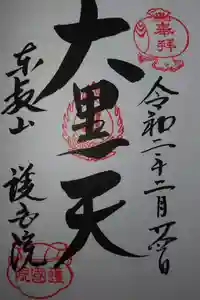 奉拝
令和二年二月日
大黒天
東叡山
護国院
護國院